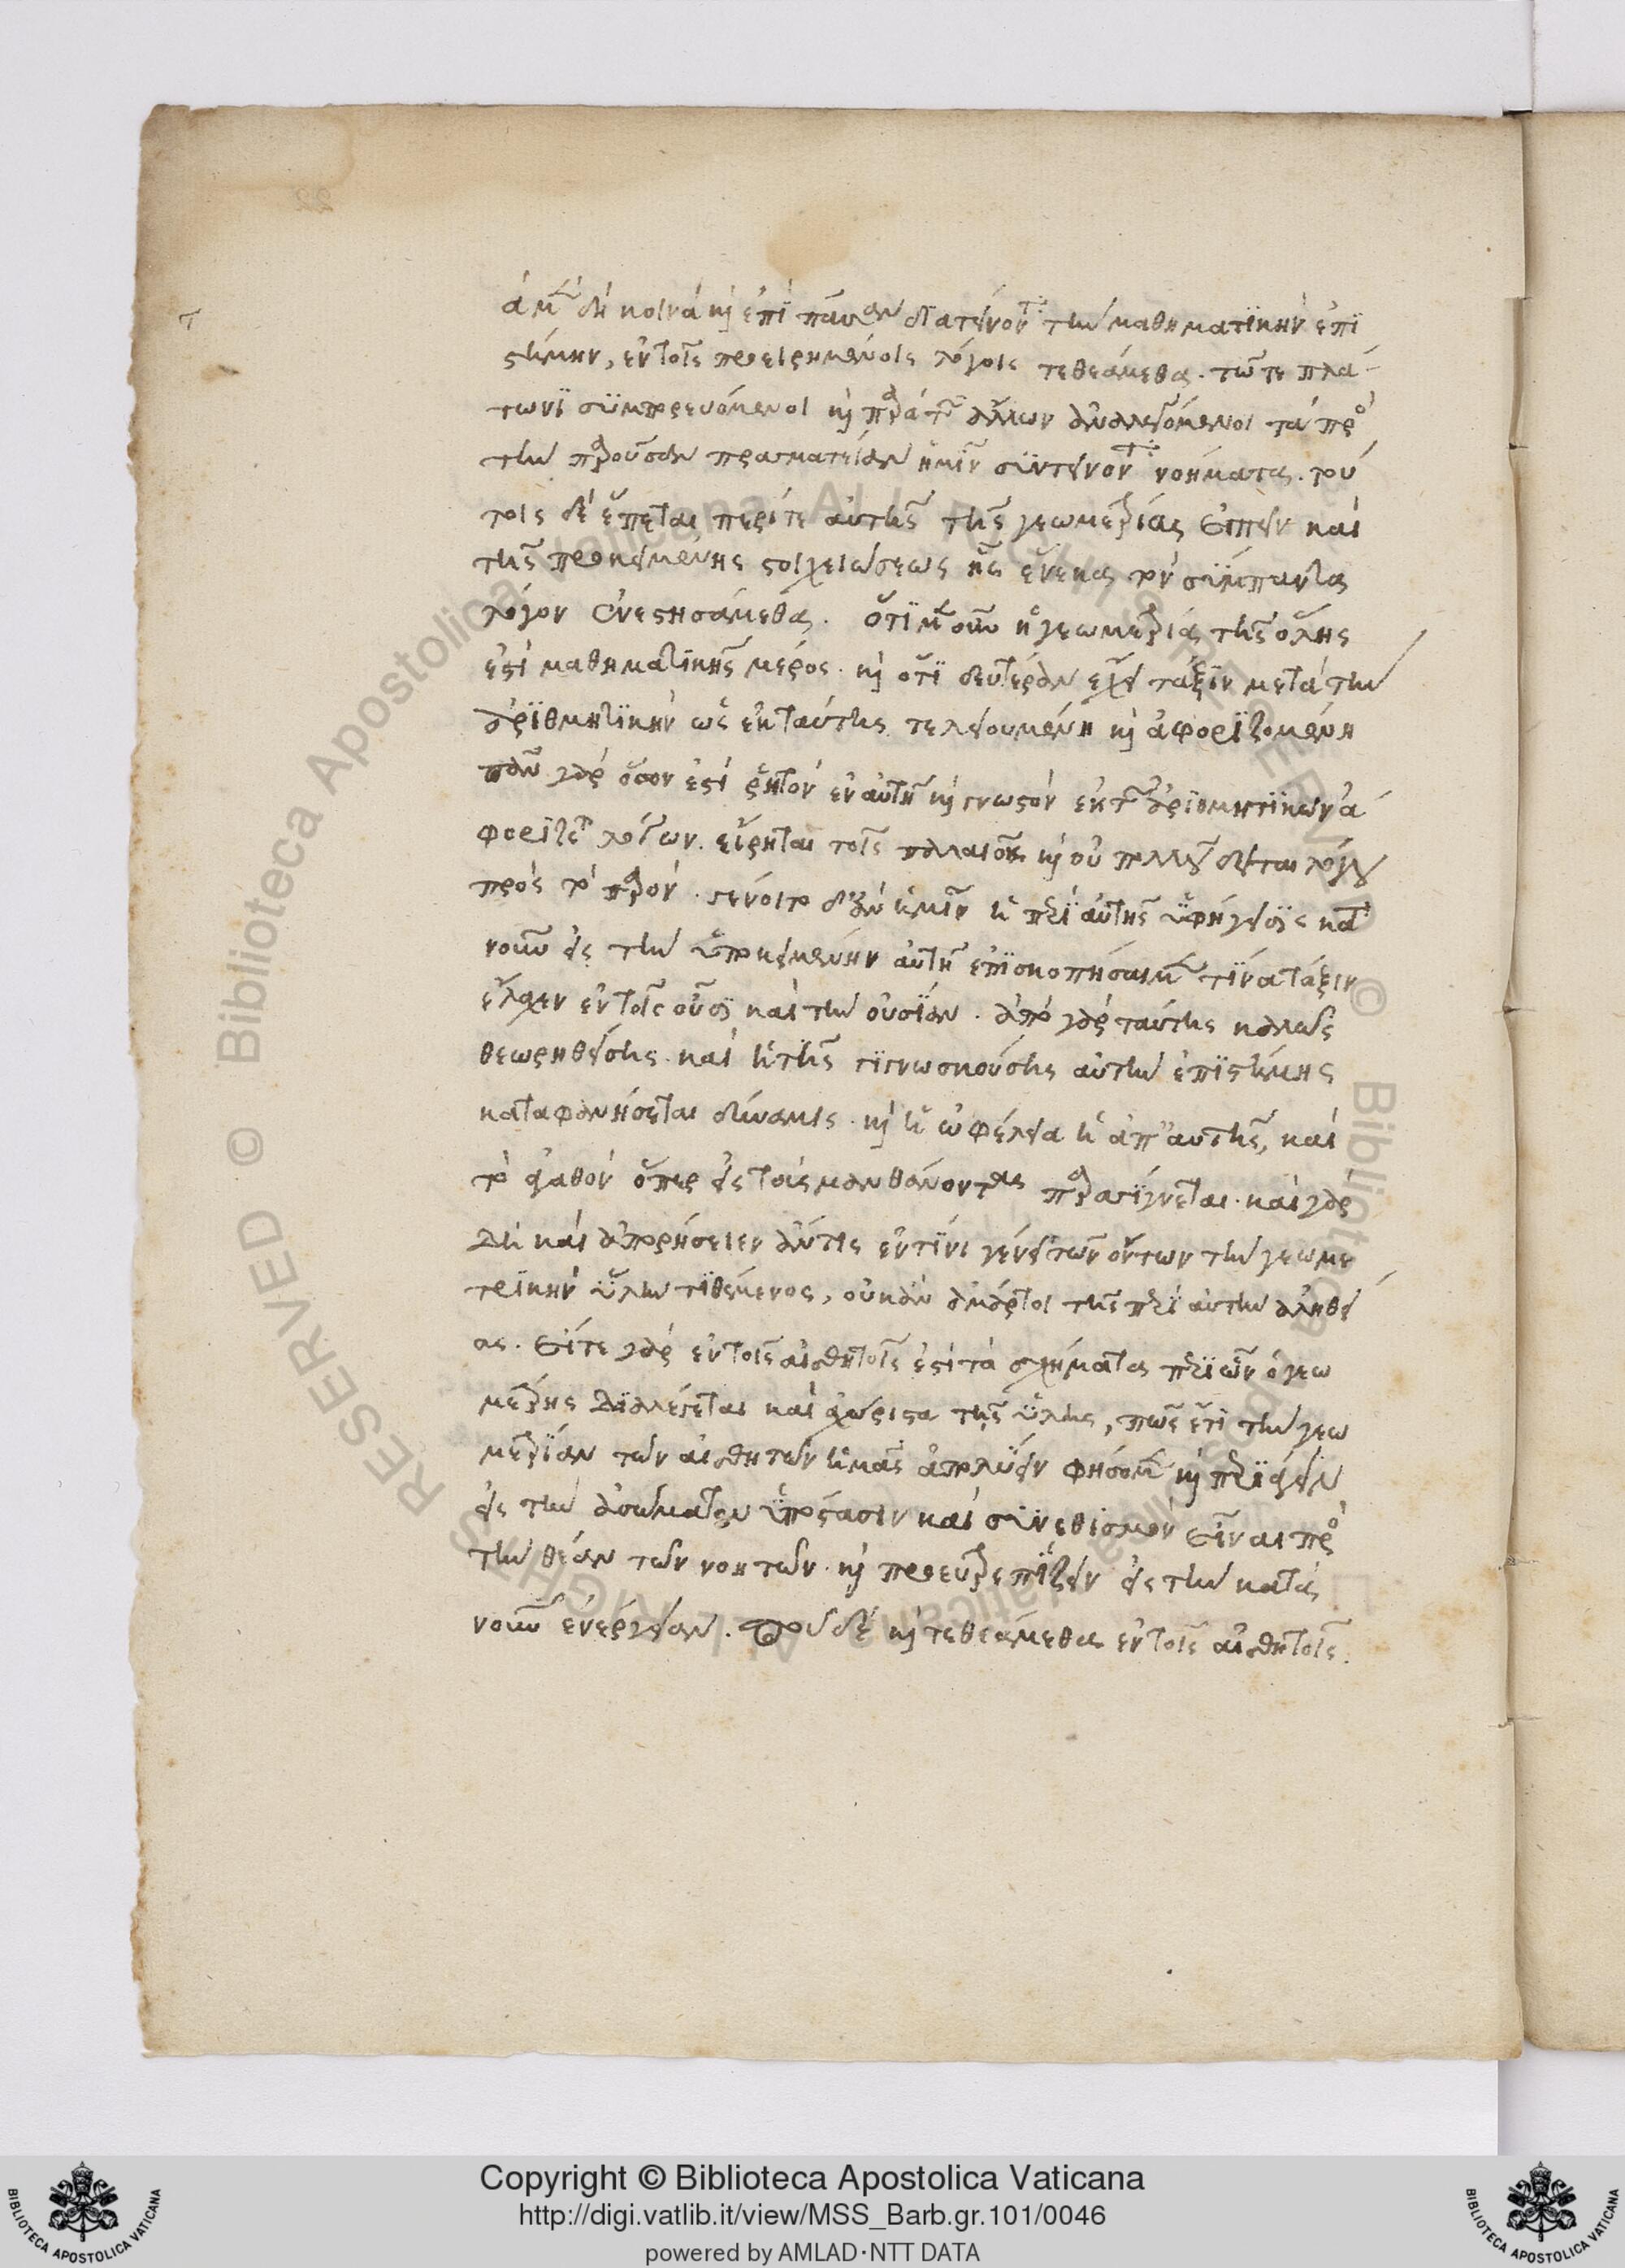 ἃ μὲν δὴ κοινὰ καὶ ἐπὶ πᾶσαν διατείνοντα τὴν μαθηματικὴν ἐπι
στήμην, ἐν τοῖς προειρημένοις λόγοις τεθεάμεθα. τῷ τε πλά
τωνι συμπορευόμενοι καὶ παρὰ τῶν ἄλλων ἀναλεγόμενοι τὰ πρὸς
τὴν παροῦσαν πραγματείαν ἡμῖν συντείνοντα νοήματα. τού
τοις δὲ ἕπεται περί τε αὐτῆς τῆς γεωμετρίας εἰπεῖν καὶ
τῆς προκειμένης στοιχειώσεως ἧς ἕνεκα τὸν σύμπαντα
λόγον ἐνεστησάμεθα. ὅτι μὲν οὖν ἡ γεωμετρία τῆς ὅλης
ἐστὶ μαθηματικῆς μέρος. καὶ ὅτι δευτέραν ἔχει τάξιν μετὰ τὴν
ἀριθμητικὴν ὡς ἐκ ταύτης τελειουμένη καὶ ἀφοριζομένη
πᾶν γὰρ ὅσον ἐστὶ ῥητὸν ἐν αὐτῇ καὶ γνωστὸν ἐκ τῶν ἀριθμητικῶν ἀ
φορίζεται λόγων. εἴρηται τοῖς παλαιοῖς καὶ οὐ πολλοῦ δεῖται λόγου
πρὸς τὸ παρόν. γένοιτο δ' ἂν ἡμῖν ἡ περὶ αὐτῆς ὑφήγησις κατὰ
νοῦν εἰς τὴν ὑποκειμένην αὐτῇ ἐπισκοπήσαιμεν τίνα τάξιν
ἔλαχεν ἐν τοῖς οὖσι καὶ τὴν οὐσίαν. ἀπὸ γὰρ ταύτης καλῶς
θεωρηθείσης καὶ ἡ τῆς γιγνωσκούσης αὐτὴν ἐπιστήμης
καταφανήσεται δύναμις. καὶ ἡ ὠφέλεια ἡ ἀπ' αὐτῆς, καὶ
τὸ ἀγαθὸν ὅπερ εἰς τοὺς μανθάνοντας παραγίγνεται. καὶ γὰρ
δὴ καὶ ἀπορήσειεν ἄν τις ἐν τίνι γένει τῶν ὄντων τὴν γεωμε
τρικὴν ὕλην τιθέμενος, οὐκ ἂν ἁμάρτοι τῆς περὶ αὐτὴν ἀληθεί
ας. εἴτε γὰρ ἐν τοῖς αἰσθητοῖς ἐστὶ τὰ σχήματα περὶ ὧν ὁ γεω
μέτρης διαλέγεται καὶ ἀχώριστα τῆς ὕλης, πῶς ἔτι τὴν γεω
μετρίαν τῶν αἰσθητῶν ἡμᾶς ἀπολύειν φήσομεν καὶ περιάγειν
εἰς τὴν ἀσώματον ὑπόστασιν καὶ συνεθισμὸν εἶναι πρὸς
τὴν θέαν τῶν νοητῶν. καὶ προευτρεπίζειν εἰς τὴν κατὰ
νοῦν ἐνέργειαν. ποῦ δὲ καὶ τεθεάμεθα ἐν τοῖς αἰσθητοῖς.
Copyright © Biblioteca Apostolica Vaticana
http://digi.vatlib.it/view/MSS_Barb.gr.101/0046
powered by AMLAD·NTT DATA
BIBLIOTECA APOSTOLICA VATICANA
BIBLIOTECA APOSTOLICA VATICANA